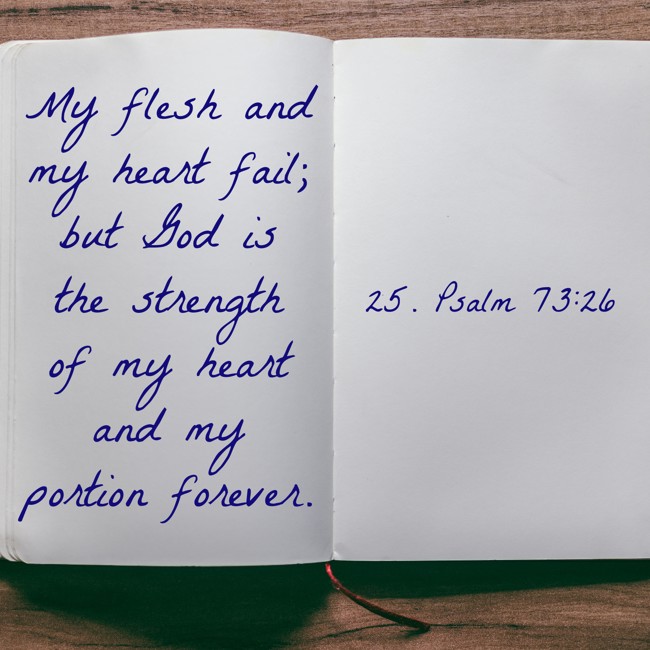 My flesh and
my heart fail;
but God is
the strength
of my heart
and my
portion forever.
25. Psalm 73:26